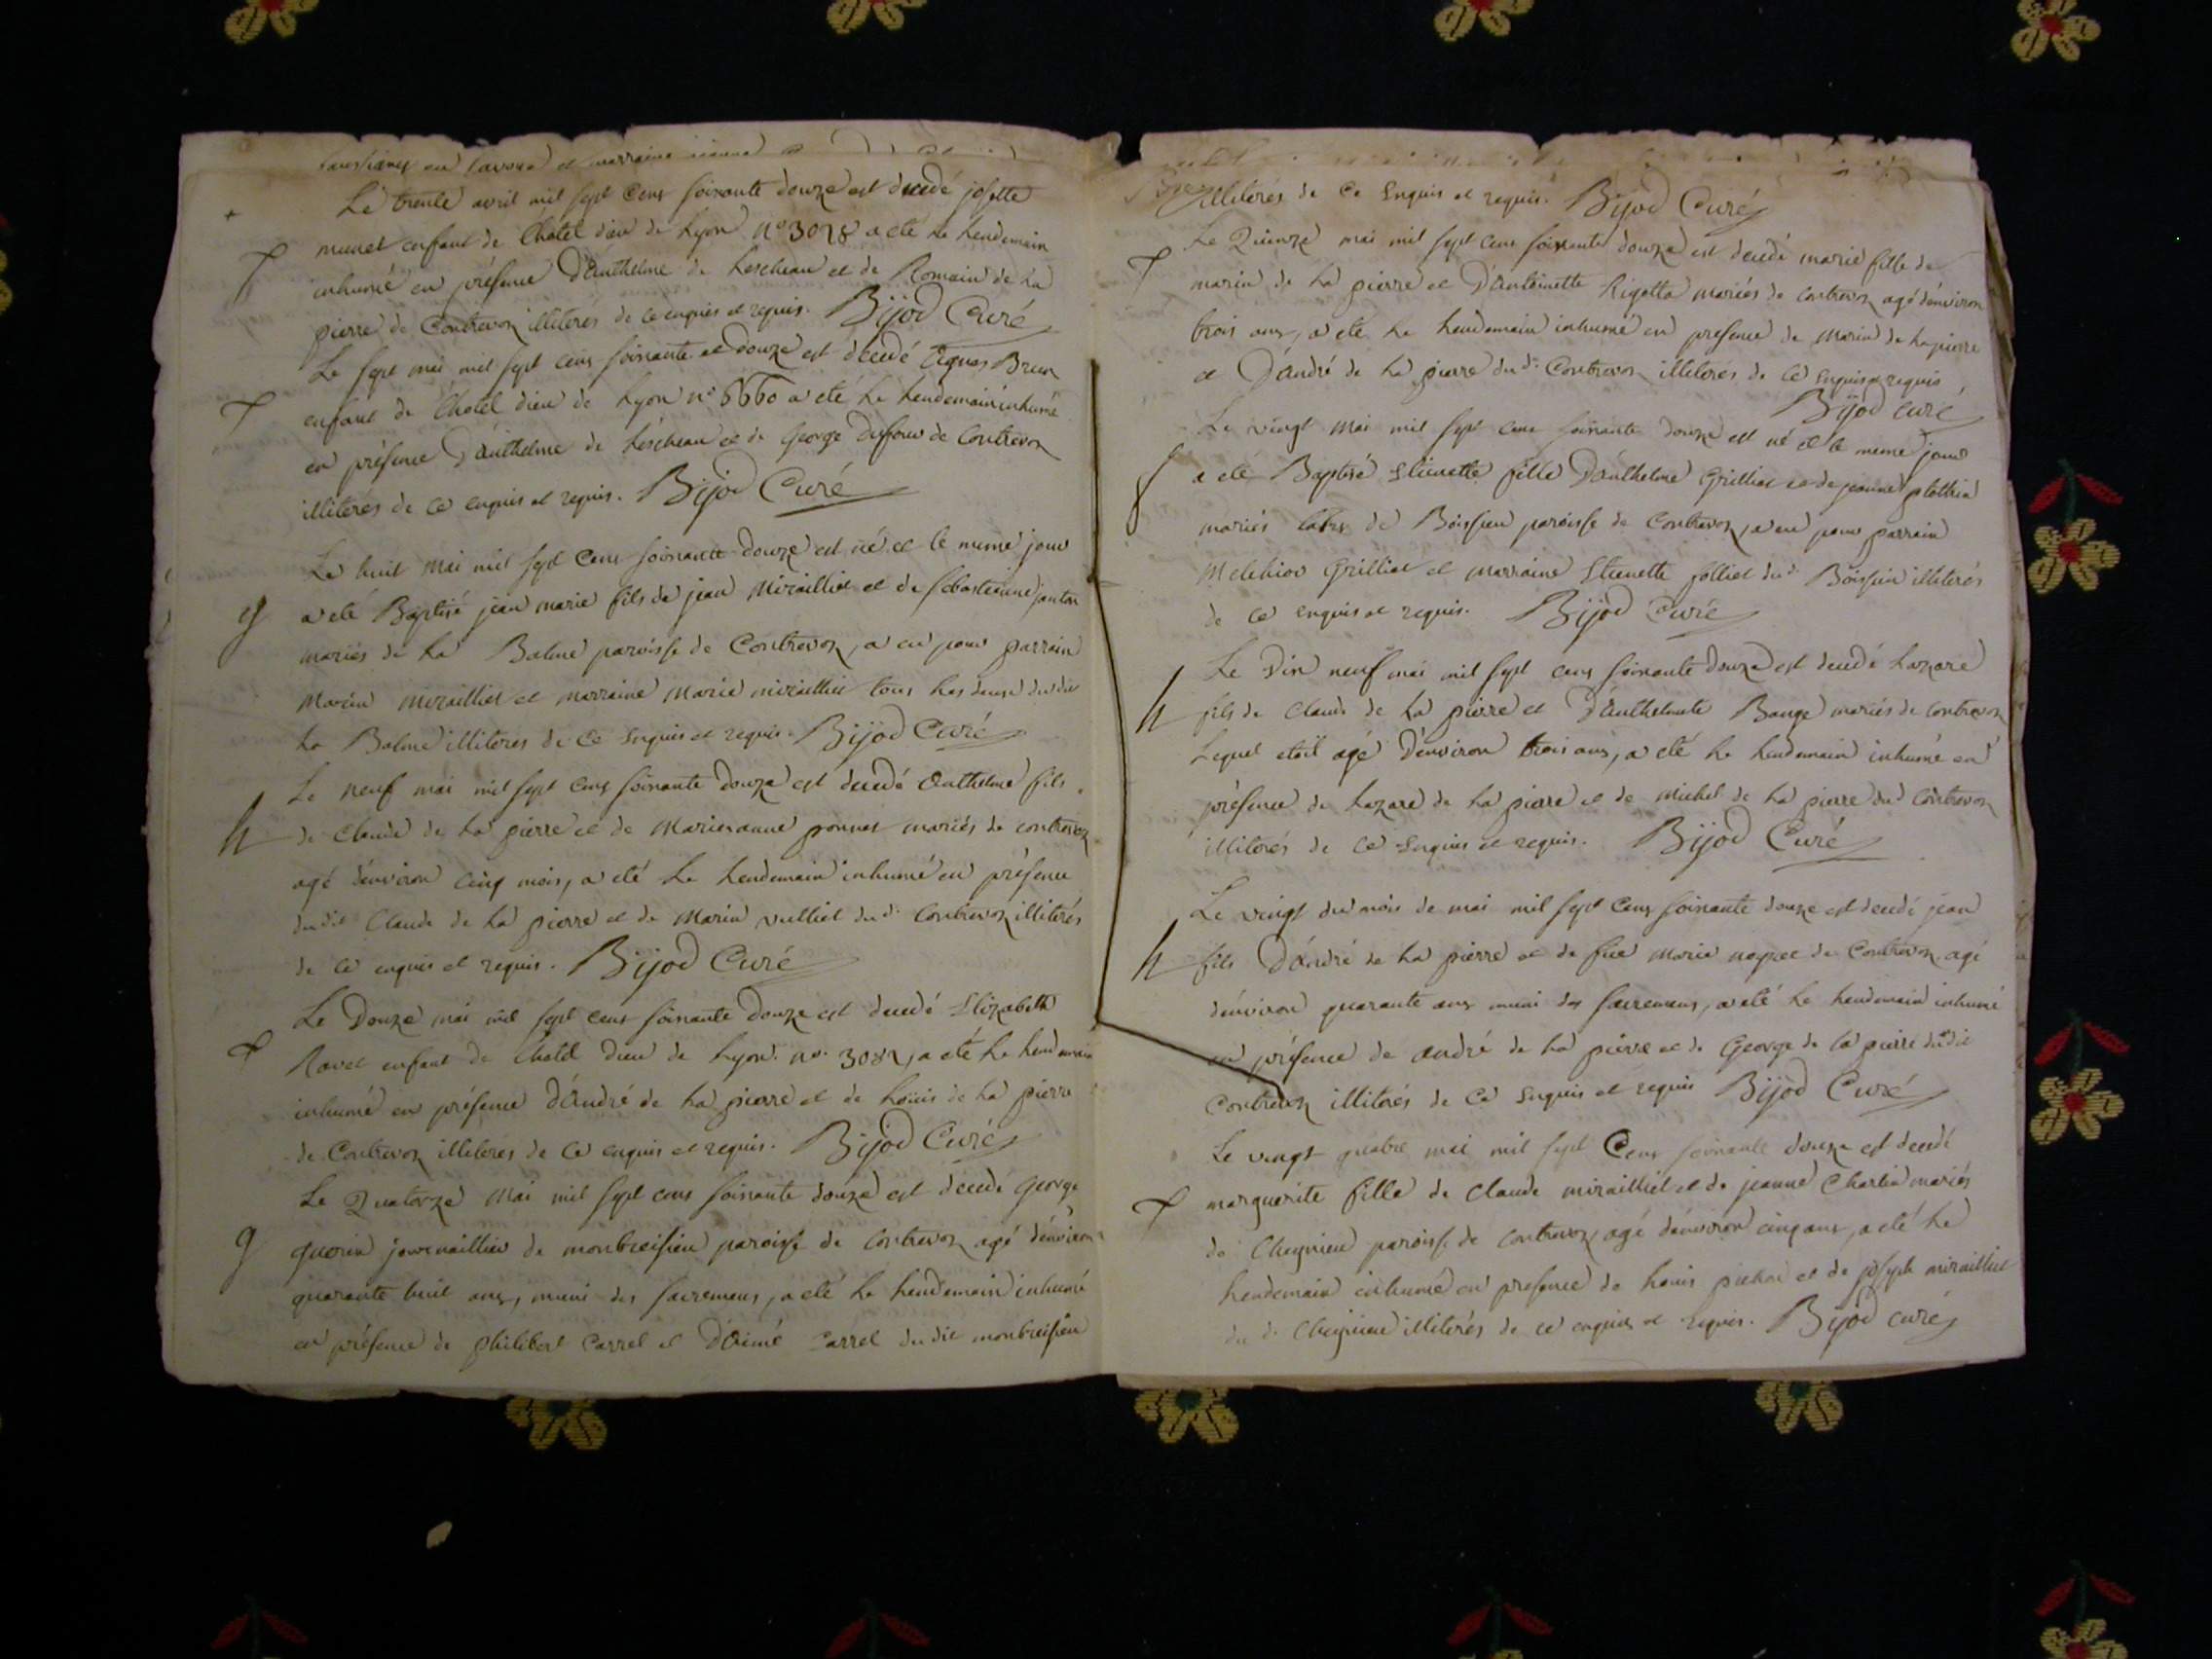 Le trente avril mil sept cens soixante douze est decedé josette
munet enfant de l'hotel dieu de Lyon n° 3028 a eté le lendemain
inhumé en présence D'anthelme de Lescheau et de Romain de La
pierre de Contrevoz illiterés de ce enquis et requis. Bijod Curé
Le sept mai mil sept cens soixante et douze est decedé agnes Brun
enfant de l'hotel dieu de Lyon n° 6660 a eté le lendemain inhumé
en présence D'anthelme de Lescheau et de George dufour de Contrevoz
illiterés de ce enquis et requis. Bijod Curé
Le huit mai mil sept cens soixante douze est né et le meme jour
a eté Baptisé jean marie fils de jean Miraillet et de sebastienne janton
mariés de La Balme paroisse de Contrevoz, a eu pour parrain
Marin miralliet et marraine Marie miralliet tous les deux dudit
La Balme illiteres de ce enquis et requis. Bijod Curé
Le neuf mai mil sept cens soixante douze est decedé anthelme fils
de Claude de La pierre et de Marieanne ponnet mariés de contrevoz
agé d'environ cinq mois, a eté Le Lendemain inhumé en présence
dudit Claude de La pierre et de Marin vulliet dud. Contrevoz illiterés
de ce enquis et requis. Bijod Curé
Le Douze mai mil sept cens soixante douze est decedé Elizabeth
Ravet enfant de l'hotel Dieu de Lyon. n°. 3082, a eté Le Lendemain
inhumé en présence d'André de La pierre et de Loüis de La pierre
de Contrevoz illiterés de ce enquis et requis. Bijod Curé
Le Quatorze Mai mil sept cens soixante douze est decedé George
guerin journaillier de montbreisieu paroisse de Contrevoz agé d'environ
quarante huit ans, muni des sacremens, a eté Le Lendemain inhumé
en présence de philibert Carrel et d'Aimé Carrel dudit montbreisieu
illiterés de Ce Enquis et requis. Bijod Curé
Le Quinze mai mil sept cens soixante douze est decedé marie fille de
marin de La pierre et D'antoinette Rigotta mariés de Contrevoz agé d'environ
trois ans, a eté Le Lendemain inhumé en presence de Marin de La pierre
et D'André de La pierre dud. Contrevoz illiterés de Ce enquis et requis,
Bijod curé
Le vingt Mai mil sept cens soixante douze est né et le meme jour
a eté Baptisé Etienette fille D'anthelme Grilliet et de jeanne plottin
mariés de Boissieu paroisse de Contrevoz, a eu pour parrain
Melchior Grilliet et marraine Etienette folliet dud. Boissieu illiterés
de ce enquis et requis. Bijod Curé
Le Dix neuf mai mil sept cens soixante douze est decedé Lazare
fils de Claude de La pierre et D'anthelmette Bauge mariés de Contrevoz
Lequel etoit agé D'environ trois ans, a eté Le Lendemain inhumé en
présence de Lazare de La pierre et de Michel de La pierre dud. Contrevoz
illiterés de Ce Enquis et requis. Bijod Curé
Le vingt du mois de mai mil sept cens soixante douze est decedé jean
fils D'André de La pierre et de füe Marie de Contrevoz agé
d'environ quarante ans muni des sacremens, a eté Le Lendemain inhumé
en présence de André de La pierre et de George de la pierre dudit
Contrevoz illiterés de Ce Enquis et requis Bijod Curé
Le vingt quatre mai mil sept Cens soixante douze est decedé
marguerite fille de Claude miralliet et de jeanne Charlin mariés
de Cheynieu paroisse de Contrevoz, agé d'environ cinq ans, a eté Le
Lendemain inhumé en presence de Louis pichon et de joseph miralliet
du d. Cheynieu illiterés de ce enquis et requis. Bijod curé